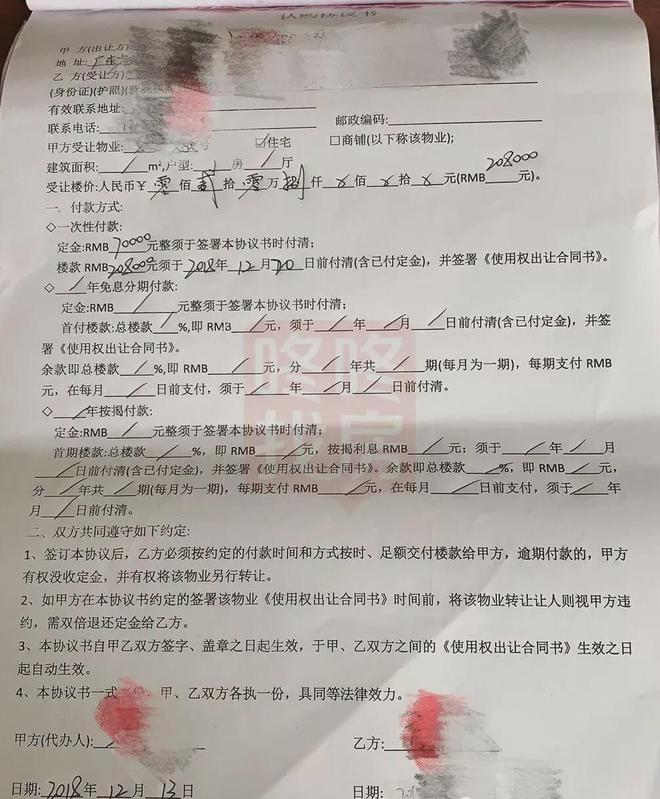 认购协议书
甲 方(出让方)
地 址: 广东
乙 方(受让方)
(身份证)(护照)
有效联系地址:
邮政编码:
联系电话: 1
甲方受让物业: 号 ☑住宅 □商铺(以下称该物业);
建筑面积: / m²,户型: / 房 / 厅
受让楼价:人民币¥ 零 佰 贰 拾 零 万 捌 仟 x 佰 x 拾 x 元(RMB 208000 元)。
一. 付款方式:
◇一次性付款:
定金:RMB 70000 元整须于签署本协议书时付清;
楼款 RMB 208000 元须于 2018 年 12 月 20 日前付清(含已付定金),并签署《使用权出让合同书》。
◇ / 年免息分期付款:
定金:RMB / 元整须于签署本协议书时付清;
首付楼款:总楼款 / %,即 RMB / 元，须于 / 年 / 月 / 日前付清(含已付定金)，并签
署《使用权出让合同书》。
余款即总楼款 / %,即 RMB / 元，分 / 年共 / 期(每月为一期)，每期支付 RMB
/ 元，在每月 / 日前支付，须于 / 年 / 月 / 日前付清。
◇ / 年按揭付款:
定金:RMB / 元整须于签署本协议书时付清;
首期楼款:总楼款 / %，即 RMB / 元，按揭利息 RMB / 元；须于 / 年 / 月
/ 日前付清(含已付定金)，并签署《使用权出让合同书》。余款即总楼款 / %，即 RMB / 元，
分 / 年共 / 期(每月为一期)，每期支付 RMB / 元，在每月 / 日前支付，须于 / 年
/ 月 / 日前付清。
二、双方共同遵守如下约定:
1、签订本协议后，乙方必须按约定的付款时间和方式按时、足额交付楼款给甲方，逾期付款的，甲方
有权没收定金，并有权将该物业另行转让。
2、如甲方在本协议书约定的签署该物业《使用权出让合同书》时间前，将该物业转让让人则视甲方违
约，需双倍退还定金给乙方。
3、本协议书自甲乙双方签字、盖章之日起生效，于甲、乙双方之间的《使用权出让合同书》生效之日
起自动生效。
4、本协议书一式 份，甲、乙双方各执一份，具同等法律效力。
甲方(代办人): 乙方:
日期: 2018 年 12 月 13 日 日期: 20
咚咚
找房